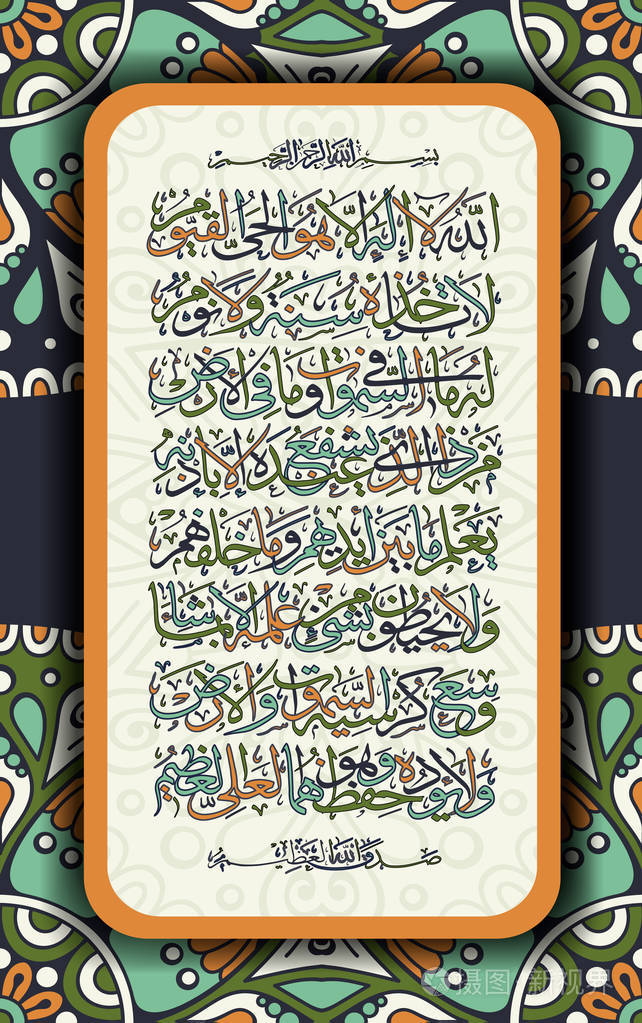 بسم الله الرحمن الرحيم
الله لا إله إلا هو الحي القيوم
لا تأخذه سنة ولا نوم
له ما في السموات وما في الأرض
من ذا الذي يشفع عنده إلا بإذنه
يعلم ما بين أيديهم وما خلفهم
ولا يحيطون بشيء من علمه إلا بما شاء
وسع كرسيه السموات والأرض
ولا يؤوده حفظهما وهو العلي العظيم
صدق الله العظيم
摄图·新视界